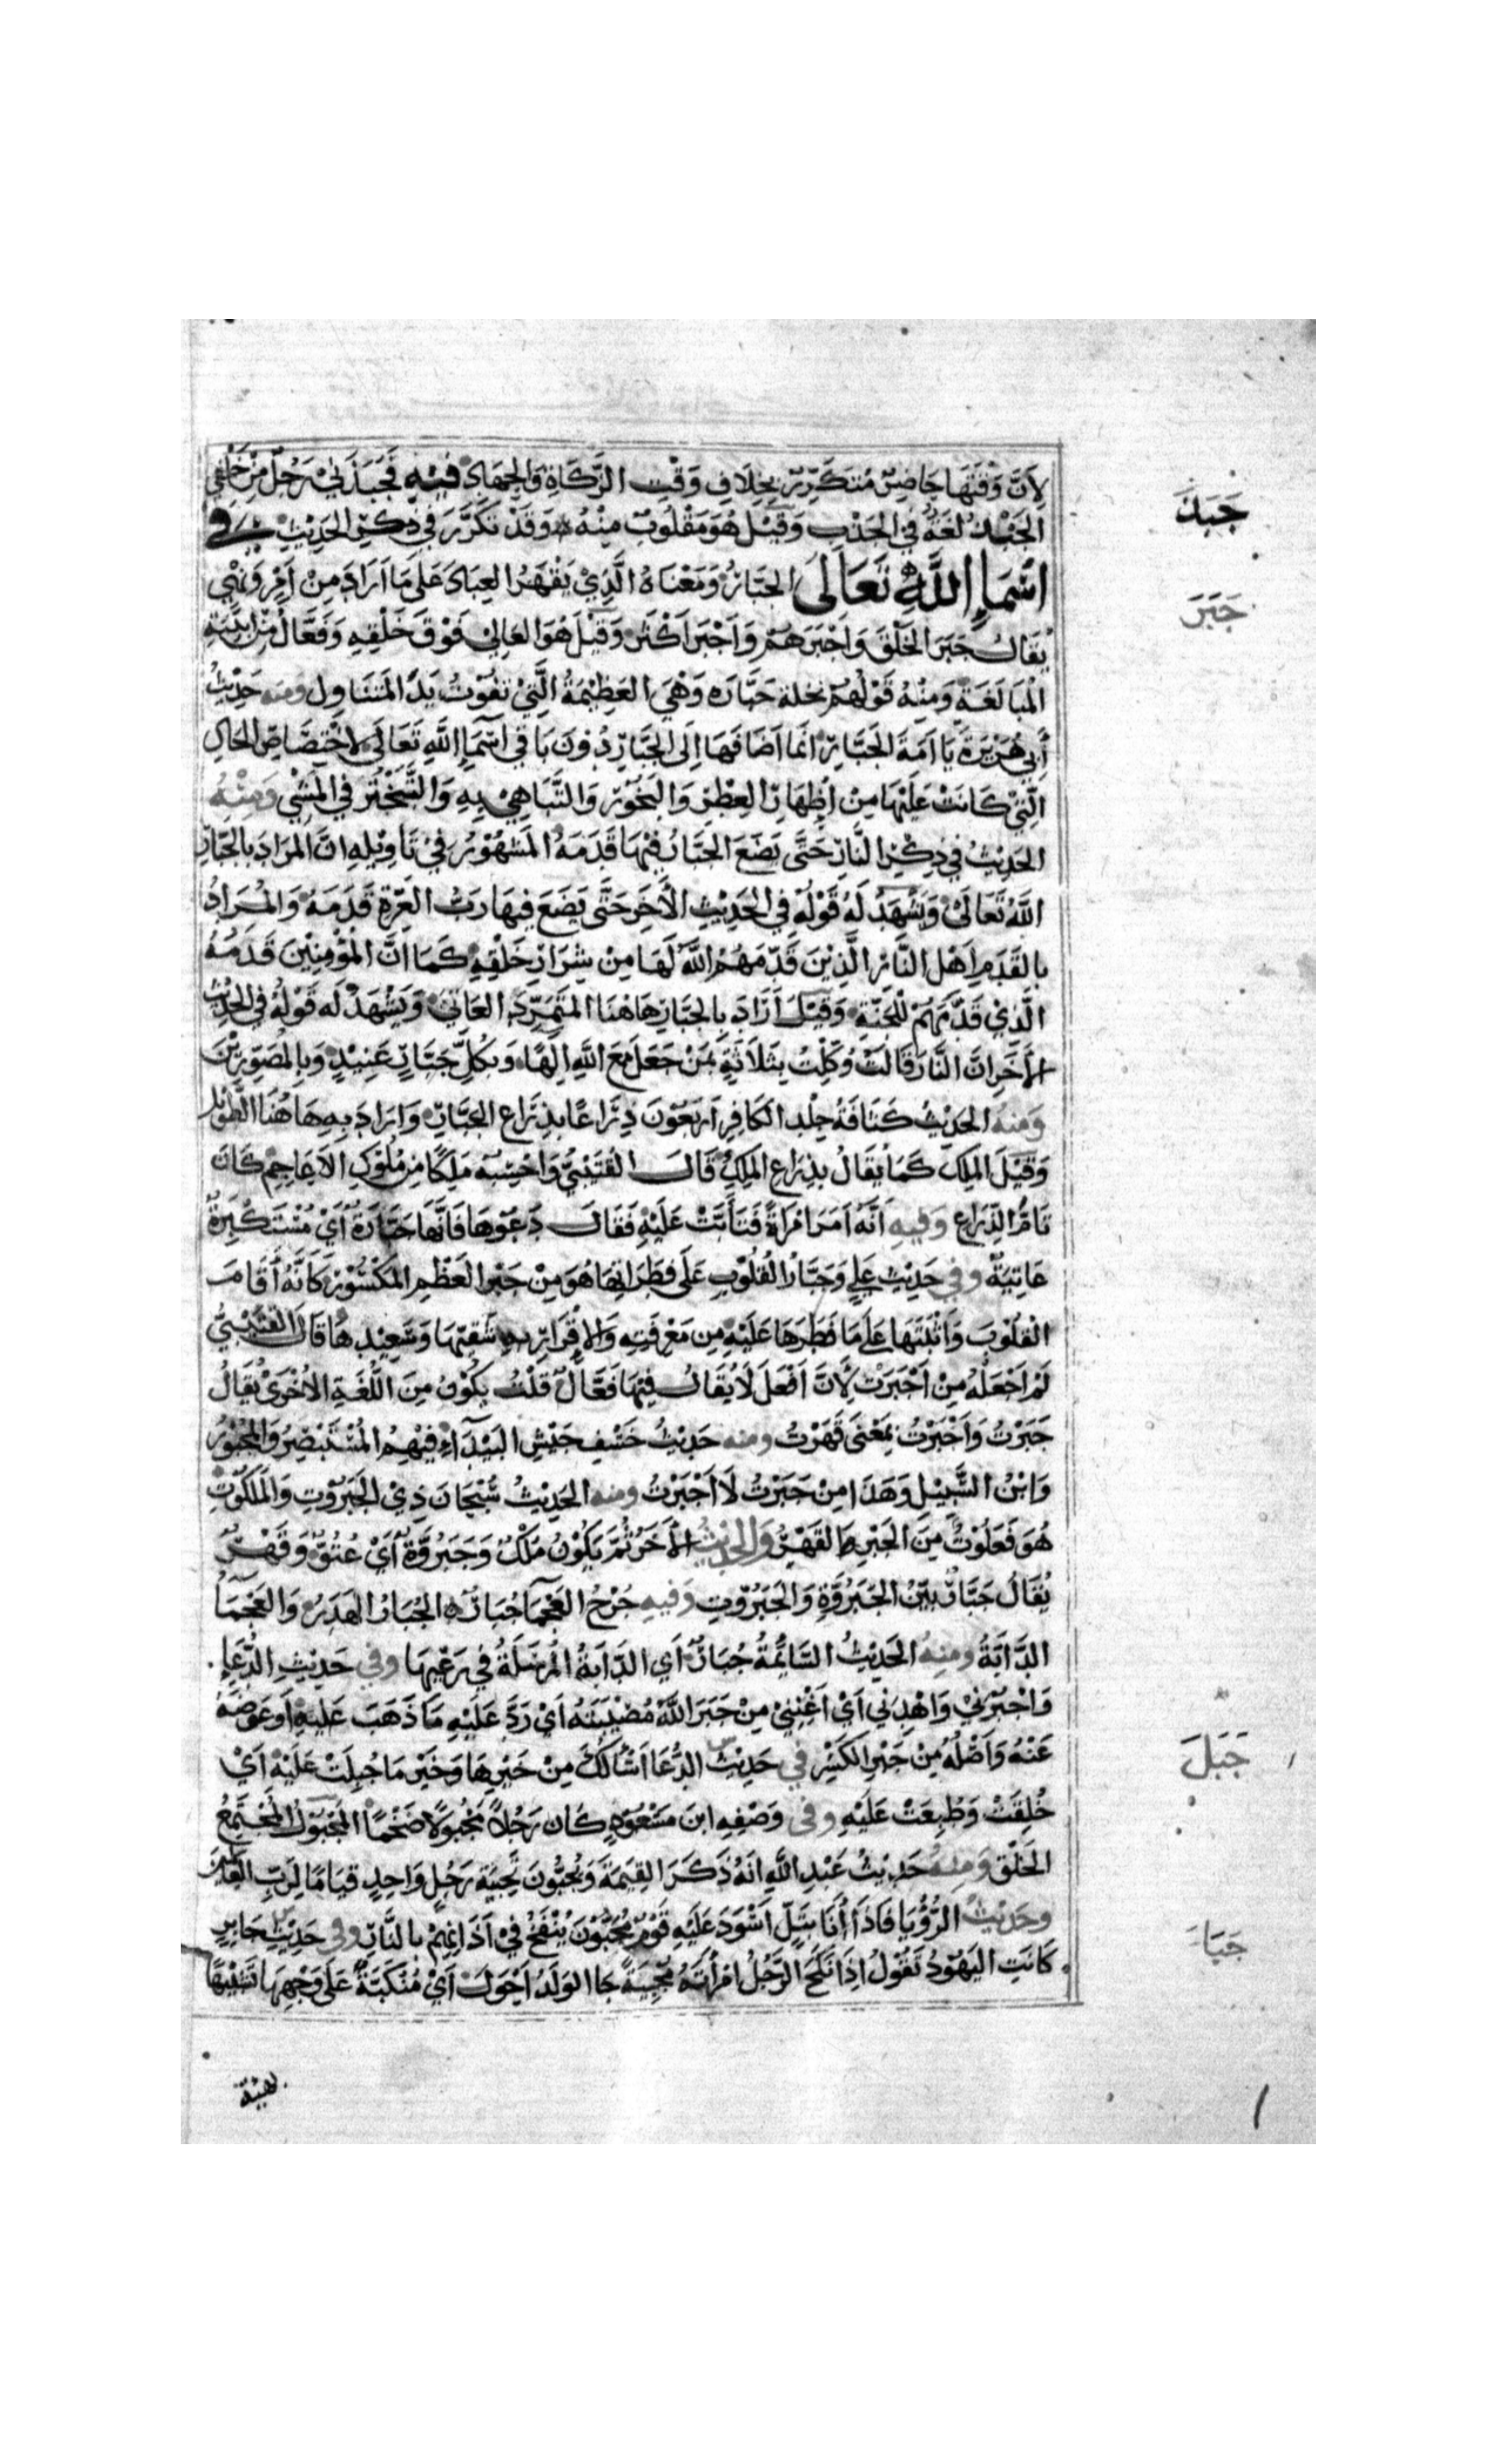 لِاَنَّ وَقْتَهَا حَاضِرٌ مُتَكَرِّرٌ بِخِلَافِ وَقْتِ الزَّكَاةِ وَالجِهَادِ فيهِ فَجَبَذَنِيْ رَجُلٌ مِنْ خَلْفِي
الجَبْذُ لُغَةٌ فِي الجَذْبِ وَقِيْلَ هُوَ مَقْلُوبٌ مِنْهُ وَقَدْ تَكَرَّرَ فِي ذِكْرِ الحَدِيْثِ في
جَبَذَ
اَسْمَاءِ اللَّهِ تَعَالَى الجَبَّارُ وَمَعْنَاهُ الَّذِيْ يَقْهَرُ العِبَادَ عَلَى مَا اَرَادَ مِنْ اَمْرٍ وَنَهْيٍ
جَبَرَ
يُقَالُ جَبَرَ الخَلْقَ وَاَجْبَرَهُمْ وَاَجْبَرَ اَكْثَرُ وَقِيْلَ هُوَ العَالِيْ فَوْقَ خَلْقِهِ وَفَعَّالٌ مِنْ اَبْنِيَةِ
الْمُبَالَغَةِ وَمِنْهُ قَوْلُهُمْ نخلة جَبَّارَه وَهْيَ العَظِيْمَةُ الَّتِيْ تَفُوْتُ يَدَ المُتَنَاوِلِ ومنه حَدِيْثُ
أَبِي هُرَيْرَةَ يَا اَمَةَ الجَبَّارِ انَّمَا اَضَافَهَا اِلَى الجَبَّارِ دُوْنَ بَاقِي اَسْمَاءِ اللَّهِ تَعَالَى لاخْتِصَاصِ الحَالِ
الَّتِيْ كَانَتْ عَلَيْهَا مِنْ اِظْهَارِ العِطْرِ وَالبَخُوْرِ وَالتَّبَاهِيْ بِهِ وَالتَّبَخْتُرِ فِي المَشْيِ وَمِنْهُ
الحَدِيْثُ فِي ذِكْرِ النَّارِ حَتَّى يَضَعَ الجَبَّارُ فِيْهَا قَدَمَهُ المَشْهُوْرُ فِيْ تَاوِيْلِهِ انَّ المُرَادَ بِالجَبَّارِ
اللَّهُ تَعَالَى وَيَشْهَدُ لَهُ قَوْلُهُ فِي الحَدِيْثِ الأَخَرِ حَتَّى يَضَعَ فِيهَا رَبُّ العِزَّةِ قَدَمَهُ وَالْمُرَادُ
بِالقَدَمِ اَهْلُ النَّارِ الَّذِيْنَ قَدَّمَهُمُ اللَّهُ لَهَا مِنْ شِرَارِ خَلْقِهِ كَمَا انَّ المُؤْمِنِيْنَ قَدَمُهُ
الَّذِي قَدَّمَهُمْ لِلْجَنَّةِ وَقِيْلَ اَرَادَ بِالجَبَّارِ هَاهُنَا المُتَمَرِّدَ العَاتِيَ وَيَشْهَدُ لَه قَوْلُهُ فِي الحَدِيْثِ
الأَخَرِ انَّ النَّارَ قَالَتْ وُكِّلْتُ بِثَلَاثَةٍ بِمَنْ جَعَلَ مَعَ اللَّهِ اِلَهًا وَبِكُلِّ جَبَّارٍ عَنِيْدٍ وَبِالْمُصَوِّرِيْنَ
وَمِنْهُ الحَدِيْثُ كَثَافَةُ جِلْدِ الكَافِرِ اَرْبَعُوْنَ ذِرَاعًا بِذِرَاعِ الجَبَّارِ وَارَادَ بِهِ هَاهُنَا الطَّوِيْلَ
وَقِيْلَ المَلِكَ كَمَا يُقَالُ بِذِرَاعِ المَلِكِ قَالَ القُتَيْبِيُّ وَاحْسِبُه مَلِكًا مِنْ مُلُوْكِ الاَعَاجِمِ كَانَ
تَامَّ الذِّرَاعِ وَفيهِ اَنَّهُ اَمَرَ امْرَاَةً فَتَأَبَّتْ عَلَيْهِ فَقَالَ دَعُوْهَا فَاِنَّهَا جَبَّارَةٌ اَيْ مُسْتَكْبِرَةٌ
عَاتِيَةٌ وفي حَدِيْثِ عَلِيٍّ وَجَبَّارُ الْقُلُوْبِ عَلَى فِطَرَاتِهَا هُوَ مِنْ جَبْرِ العَظْمِ المَكْسُوْرِ كَاَنَّهُ أَقَامَ
الْقُلُوْبَ وَاَثْبَتَهَا عَلَى مَا فَطَرَهَا عَلَيْهِ مِن مَعْرِفَتِهِ وَالاِقْرَارِ بِهِ شَقِيِّهَا وَسَعِيْدِهَا قَالَ القُتَيْبِيُّ
لَمْ اَجْعَلْهُ مِنْ اَجْبَرْتُ لِأَنَّ اَفْعَلَ لَا يُقَالُ فِيْهَا فَعَّالٌ قُلْتُ يَكُوْنُ مِنَ اللُّغَةِ الاُخْرَى يُقَالُ
جَبَرْتُ وَاَجْبَرْتُ بِمَعْنَى قَهَرْتُ ومنه حَدِيْثُ خَسْفِ جَيْشِ البَيْدَآءِ فِيْهِمُ المُسْتَبْصِرُ وَالمَجْبُوْرُ
وَابْنُ السَّبِيْلِ وَهَذَا مِنْ جَبَرْتُ لَا اَجْبَرْتُ ومنه الحَدِيْثُ سُبْحَانَ ذِيْ الجَبَرُوْتِ وَالمَلَكُوْتِ
هُوَ فَعَلُوْتٌ مِنَ الجَبْرِ وَالقَهْرِ وَالحَدِيْثُ الأَخَرُ ثُمَّ يَكُوْنُ مُلْكٌ وَجَبَرُوَّةٌ اَيْ عُتُوٌّ وَقَهْرٌ
يُقَالُ جَبَّارٌ بَيِّنُ الجَبَرُوَّةِ وَالجَبَرُوْتِ وَفيهِ جُرْحُ العَجْمَآ جُبَارٌ الجُبَارُ الهَدَرُ وَالعَجْمَآءُ
الدَّابَةُ وَمِنهُ الحَدِيْثُ السَّائِمَةُ جُبَارٌ اَيِ الدَّابَةُ المُرْسَلَةُ فِي رَعْيِهَا وفي حَدِيْثِ الدُّعَاءِ
وَاجْبُرْنِيْ وَاهْدِنِي اَيْ اَغْنِنِيْ مِنْ جَبَرَ اللَّهُ مُصِيْبَتَهُ اَيْ رَدَّ عَلَيْهِ مَا ذَهَبَ عَلَيهِ اَو عَوَّضَهُ
عَنْهُ وَاَصْلُهُ مِنْ جَبْرِ الكَسْرِ في حَدِيْثِ الدُّعَا اَسْأَلُكَ مِنْ خَيْرِهَا وَخَيْرِ مَا جُبِلَتْ عَلَيْهِ اَيْ
جَبَلَ
خُلِقَتْ وَطُبِعَتْ عَلَيْهِ وفى وَصْفِهِ ابنَ مَسْعُوْدٍ كَانَ رَجُلاً مَجْبُولاً ضَخْمًا المَجْبُوْلُ المُجْتَمِعُ
الخَلْقِ وَمِنْهُ حَدِيْثُ عَبْدِ اللَّهِ انَهُ ذَكَرَ القِيَمَةَ وَيُجَبُّوْنَ تَجْبِيَةَ رَجُلٍ وَاحِدٍ قِيَامًا لِرَبِّ العَالَمِيْنَ
وحَدِيْثُ الرُّؤْيَا فَاذَا اَنَا بِتَلٍّ اَسْوَدَ عَلَيْهِ قَوْمٌ مُجَبُّوْنَ يُنْفَخُ فِيْ اَدْبَارِهِمْ بِالنَّارِ وفي حَدِيْثِ جَابِرٍ
جَبَا
كَانَتِ اليَهُوْدُ تَقُوْلُ اِذَا نَكَحَ الرَّجُلُ امْرَأَتَهُ مُجَبِّيَةً جَا الوَلَدُ اَحْوَلَ اَيْ مُنْكَبَّةً عَلَى وَجْهِهَا تَشْبِيْهًا
بهيئة